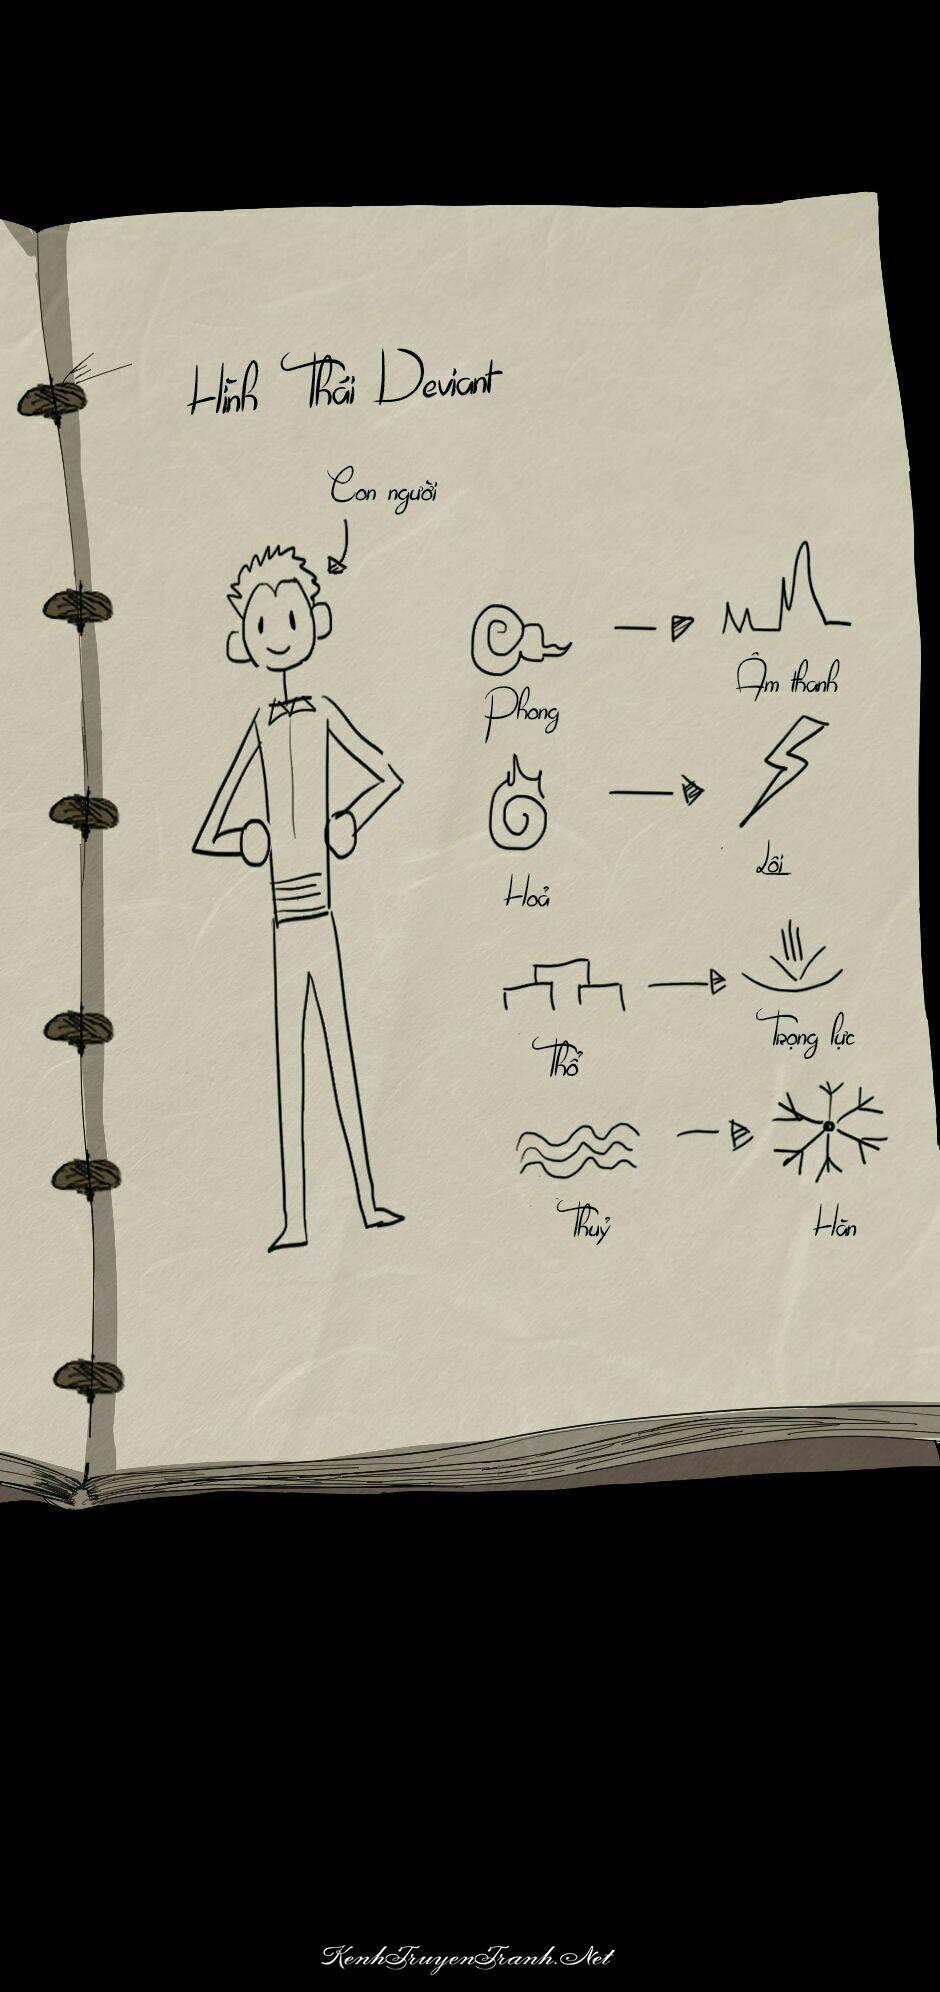 Hình Thái Deviant
Con người
Phong
Âm thanh
Hoả
Lôi
Thổ
Trọng lực
Thuỷ
Hàn
KenhTruyenTranh.Net